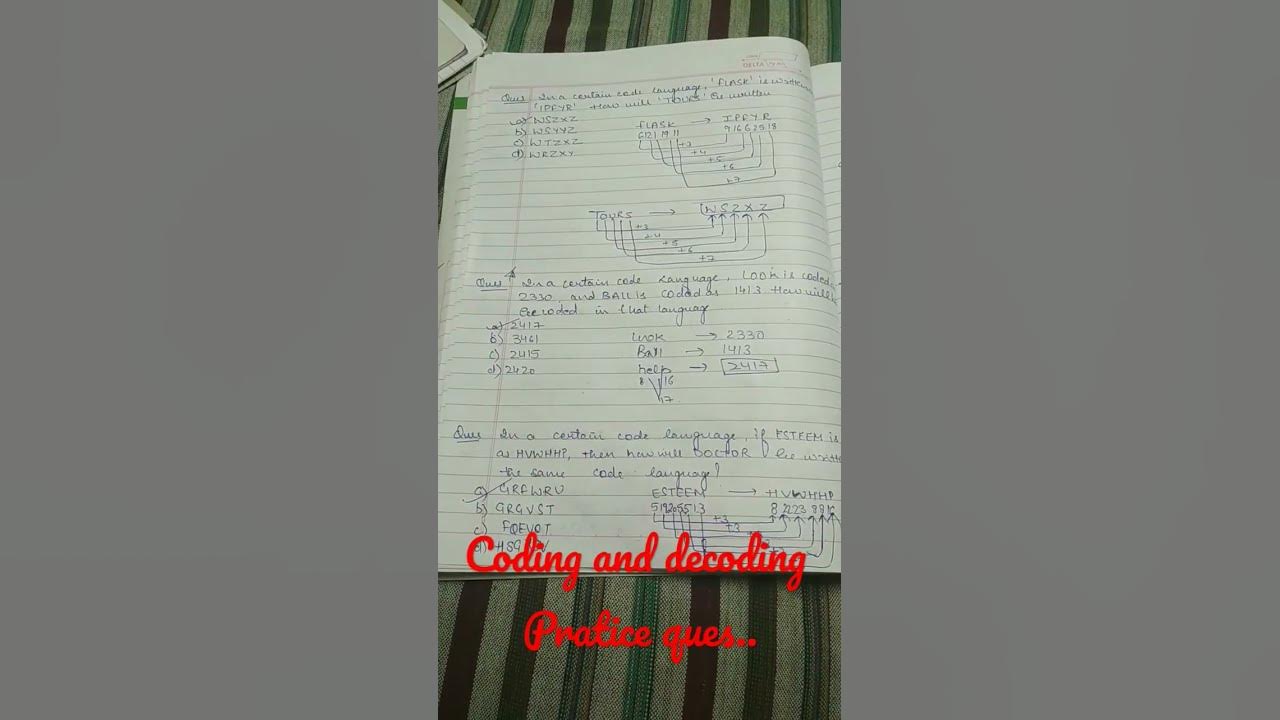 DELTA
Ques In a certain code language, 'FLASK' is written
'IPFYR' How will 'TOURS' be written
a) WSZXZ
b) WSYYZ
c) WTZXZ
d) WRZXY
FLASK → IPFYR
6 12 1 19 11 9 16 6 25 18
+3
+4
+5
+6
+7
TOURS → WSZXZ
+3
+4
+5
+6
+7
Ques In a certain code language, LOOK is coded
2330, and BALL is coded as 1413 How will
be coded in that language
a) 2417
b) 3461
c) 2415
d) 2420
LOOK → 2330
Ball → 1413
help → 2417
8 16
17
Ques In a certain code language, if ESTEEM is
as HVWHHP, then how will DOCTOR be written
the same code language?
a) GRFWRU
b) GRGVST
c) FQEVQT
d)
ESTEEM → HVWHHP
5 19 20 5 5 13 8 22 23 8 8 16
+3
+3
Coding and decoding
Pratice ques..